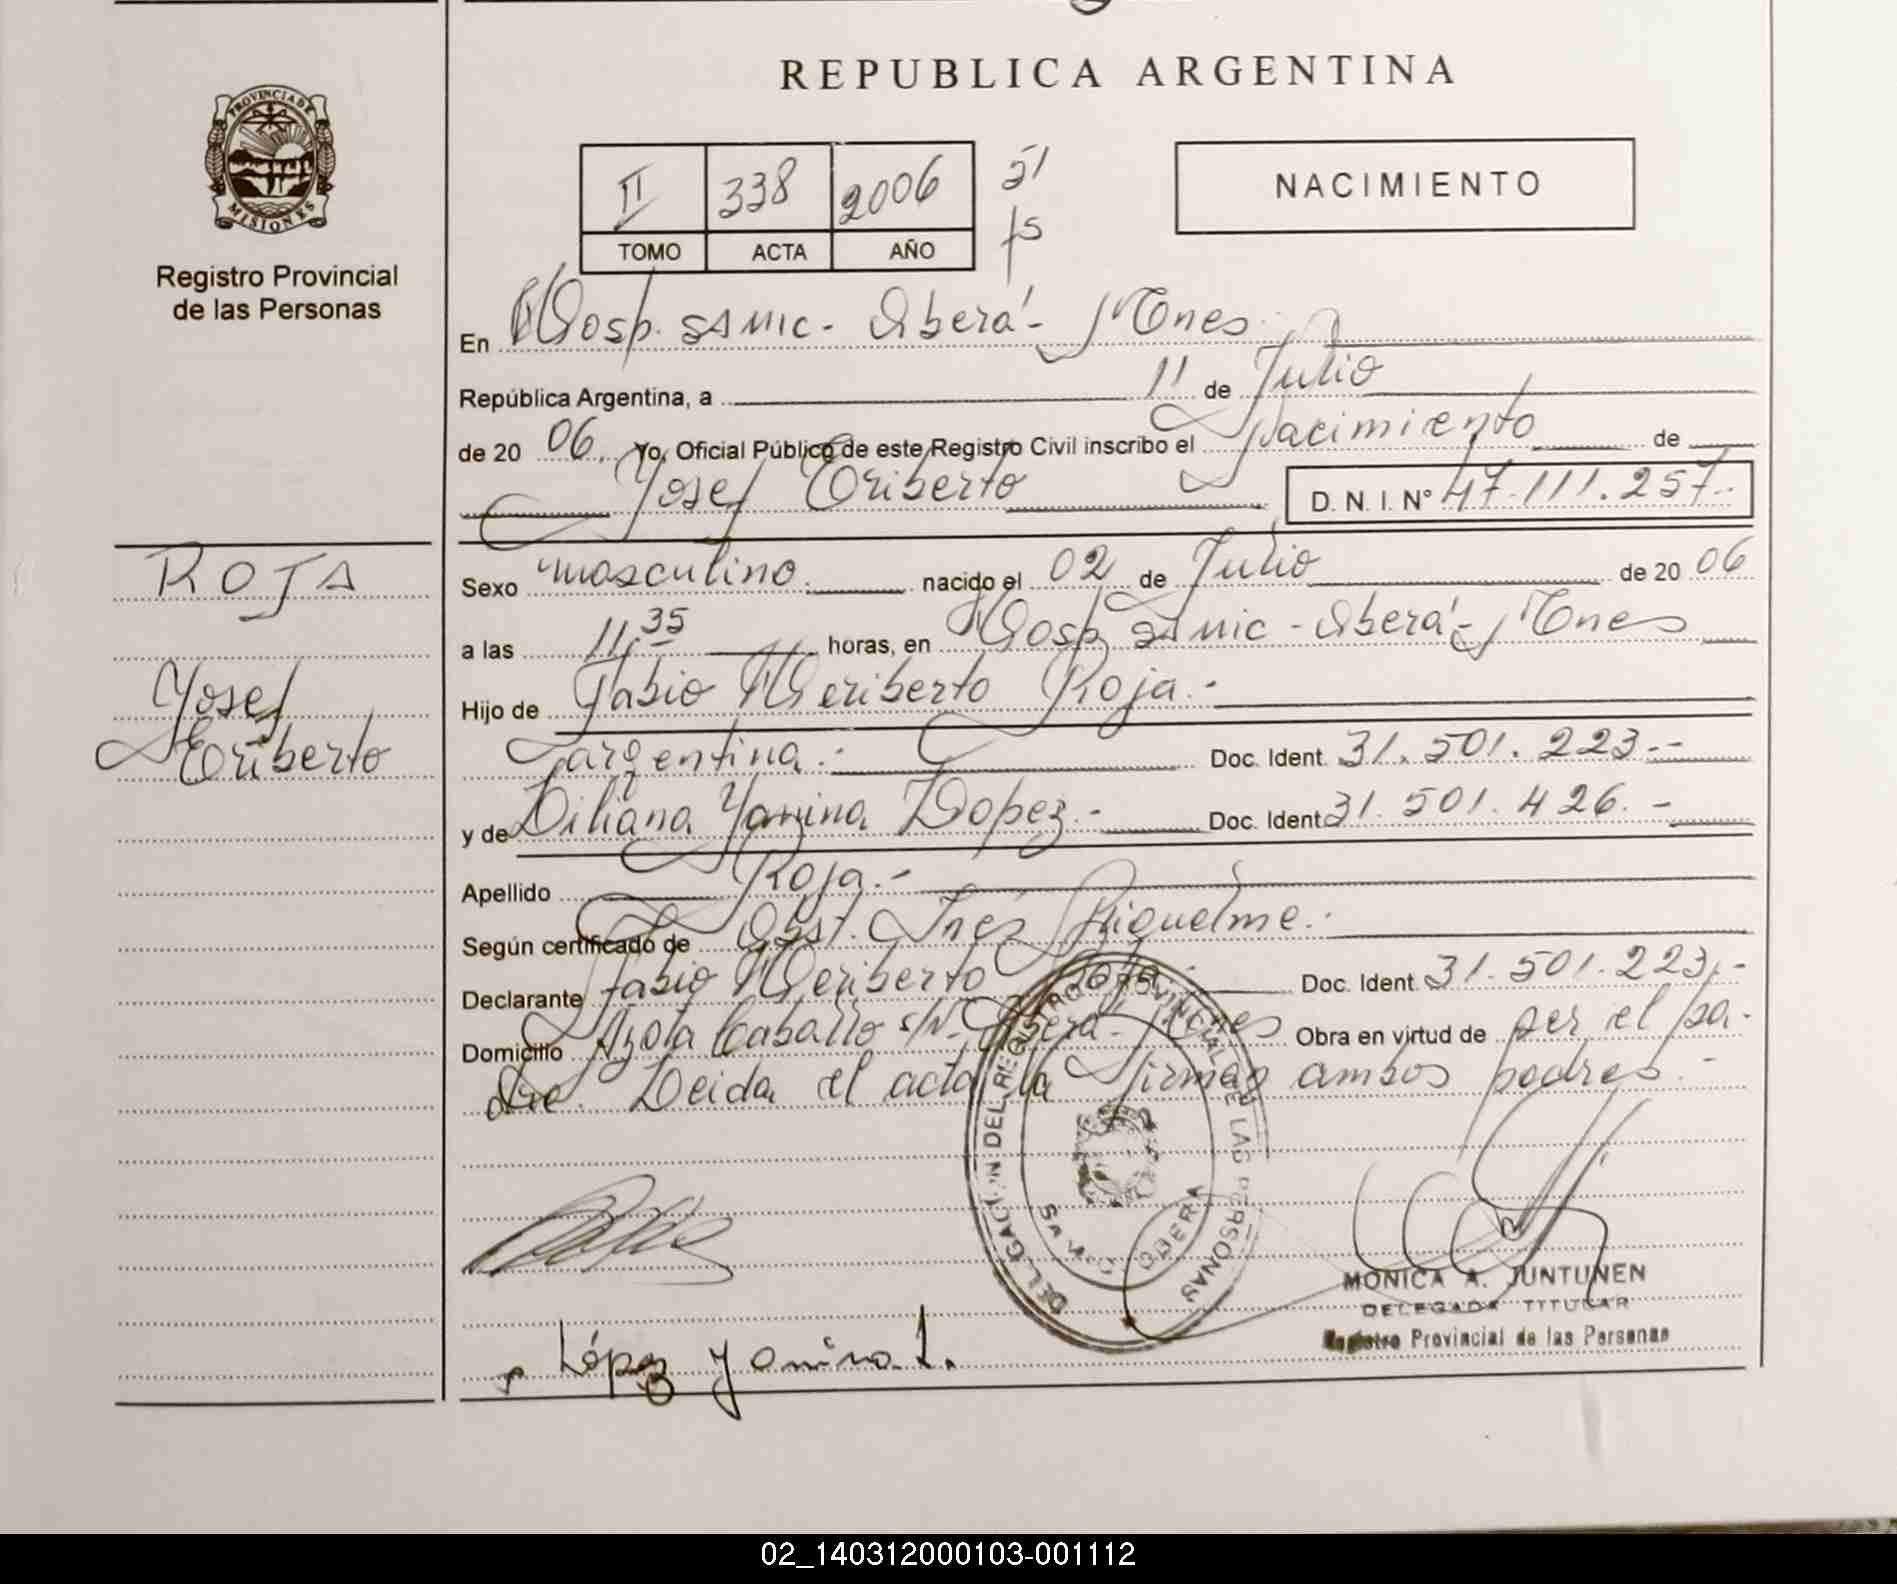 PROVINCIA DE
MISIONES
Registro Provincial
de las Personas
REPUBLICA ARGENTINA
II 338 2006 51
TOMO ACTA AÑO fs
NACIMIENTO
En Hosp. SAMIC - Oberá - Mnes
República Argentina, a 11 de Julio
de 20 06, Yo, Oficial Público de este Registro Civil inscribo el Nacimiento de
Yosef Eriberto D. N. I. Nº 47.111.257.-
ROJA
Yosef
Eriberto
Sexo masculino nacido el 02 de Julio de 20 06
a las 11,35 horas, en Hosp SAMIC - Oberá - Mnes
Hijo de Fabio Heriberto Roja.-
argentina.- Doc. Ident. 31.501.223.-
y de Liliana Yanina Lopez.- Doc. Ident. 31.501.426.-
Apellido Roja.-
Según certificado de Obst. Inés Riquelme.-
Declarante Fabio Heriberto Roja.- Doc. Ident. 31.501.223,-
Domicilio Caballo s/N- Oberá - Mnes Obra en virtud de ser el pa-
dre. Leida el acta la firman ambos padres.-
DELEGACION DEL REGISTRO PROVINCIAL DE LAS PERSONAS
OBERA
MONICA A. JUNTUNEN
DELEGADA TITULAR
Registro Provincial de las Personas
López Yanina L.
02_140312000103-001112